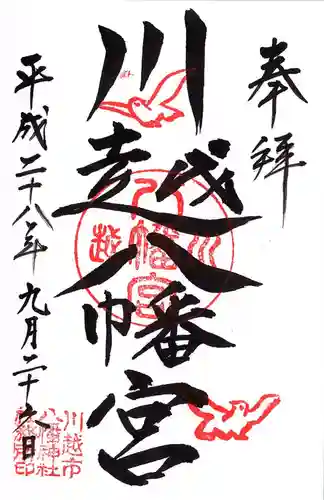 奉拝
川越八幡宮
平成二十八年九月二十六日
川越
八幡宮
川越市
八幡神社